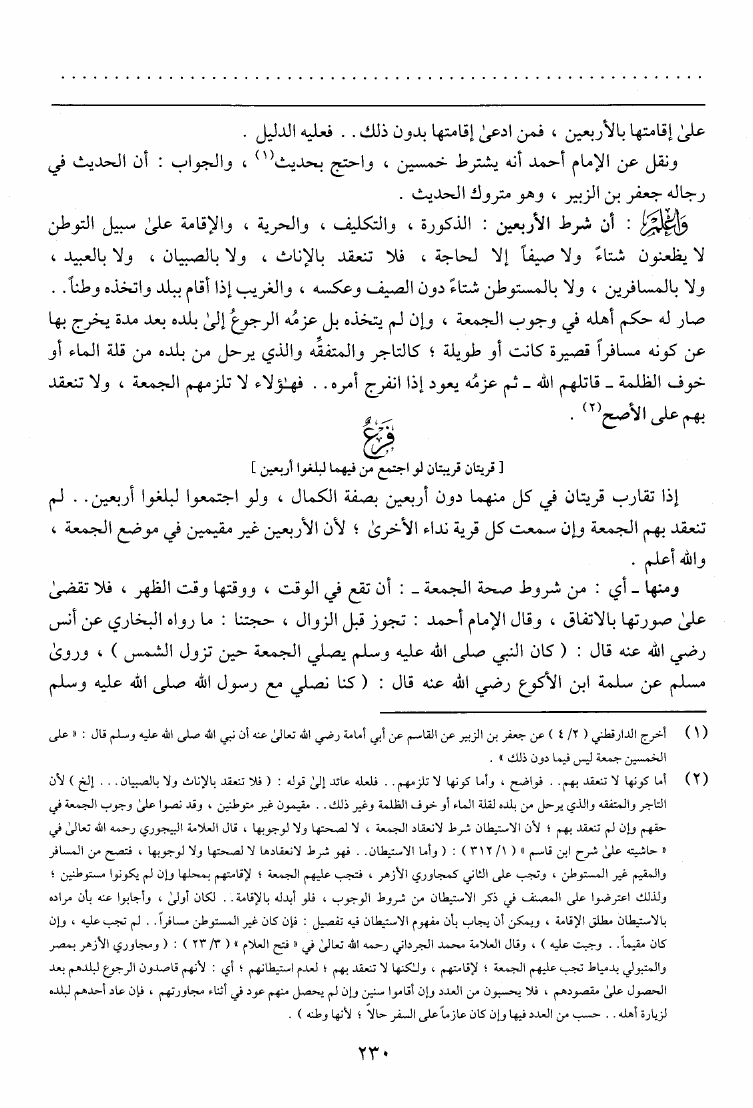 علىٰ إقامتها بالأربعين ، فمن ادعىٰ إقامتها بدون ذلك . . فعليه الدليل .
ونقل عن الإمام أحمد أنه يشترط خمسين ، واحتج بحديث(١) ، والجواب : أن الحديث في
رجاله جعفر بن الزبير ، وهو متروك الحديث .
وَاعْلَمْ : أن شرط الأربعين : الذكورة ، والتكليف ، والحرية ، والإقامة علىٰ سبيل التوطن
لا يظعنون شتاءً ولا صيفاً إلا لحاجة ، فلا تنعقد بالإناث ، ولا بالصبيان ، ولا بالعبيد ،
ولا بالمسافرين ، ولا بالمستوطن شتاءً دون الصيف وعكسه ، والغريب إذا أقام ببلد واتخذه وطناً . .
صار له حكم أهله في وجوب الجمعة ، وإن لم يتخذه بل عزمُه الرجوعُ إلىٰ بلده بعد مدة يخرج بها
عن كونه مسافراً قصيرة كانت أو طويلة ؛ كالتاجر والمتفقِّه والذي يرحل من بلده من قلة الماء أو
خوف الظلمة ـ قاتلهم الله ـ ثم عزمُه يعود إذا انفرج أمره . . فهؤلاء لا تلزمهم الجمعة ، ولا تنعقد
بهم على الأصح(٢) .
فَرْعٌ
[ قريتان قريبتان لو اجتمع من فيهما لبلغوا أربعين ]
إذا تقارب قريتان في كل منهما دون أربعين بصفة الكمال ، ولو اجتمعوا لبلغوا أربعين . . لم
تنعقد بهم الجمعة وإن سمعت كل قرية نداء الأخرىٰ ؛ لأن الأربعين غير مقيمين في موضع الجمعة ،
والله أعلم .
ومنها ـ أي : من شروط صحة الجمعة ـ : أن تقع في الوقت ، ووقتها وقت الظهر ، فلا تقضىٰ
علىٰ صورتها بالاتفاق ، وقال الإمام أحمد : تجوز قبل الزوال ، حجتنا : ما رواه البخاري عن أنس
رضي الله عنه قال : ( كان النبي صلى الله عليه وسلم يصلي الجمعة حين تزول الشمس ) ، وروىٰ
مسلم عن سلمة ابن الأكوع رضي الله عنه قال : ( كنا نصلي مع رسول الله صلى الله عليه وسلم
(١) أخرج الدارقطني ( ٤/٢ ) عن جعفر بن الزبير عن القاسم عن أبي أمامة رضي الله تعالىٰ عنه أن نبي الله صلى الله عليه وسلم قال : « على
الخمسين جمعة ليس فيما دون ذلك » .
(٢) أما كونها لا تنعقد بهم . . فواضح ، وأما كونها لا تلزمهم . . فلعله عائد إلىٰ قوله : ( فلا تنعقد بالإناث ولا بالصبيان . . . إلخ ) لأن
التاجر والمتفقه والذي يرحل من بلده لقلة الماء أو خوف الظلمة وغير ذلك . . مقيمون غير متوطنين ، وقد نصوا علىٰ وجوب الجمعة في
حقهم وإن لم تنعقد بهم ؛ لأن الاستيطان شرط لانعقاد الجمعة ، لا لصحتها ولا لوجوبها ، قال العلامة البيجوري رحمه الله تعالىٰ في
« حاشيته علىٰ شرح ابن قاسم » ( ٣١٢/١ ) : ( وأما الاستيطان . . فهو شرط لانعقادها لا لصحتها ولا لوجوبها ، فتصح من المسافر
والمقيم غير المستوطن ، وتجب على الثاني كمجاوري الأزهر ، فتجب عليهم الجمعة ؛ لإقامتهم بمحلها وإن لم يكونوا مستوطنين ؛
ولذلك اعترضوا على المصنف في ذكر الاستيطان من شروط الوجوب ، فلو أبدله بالإقامة . . لكان أولىٰ ، وأجابوا عنه بأن مراده
بالاستيطان مطلق الإقامة ، ويمكن أن يجاب بأن مفهوم الاستيطان فيه تفصيل : فإن كان غير المستوطن مسافراً . . لم تجب عليه ، وإن
كان مقيماً . . وجبت عليه ) ، وقال العلامة محمد الجرداني رحمه الله تعالىٰ في « فتح العلام » ( ٢٣/٣ ) : ( ومجاوري الأزهر بمصر
والمتبولي بدمياط تجب عليهم الجمعة ؛ لإقامتهم ، ولكنها لا تنعقد بهم ؛ لعدم استيطانهم ؛ أي : لأنهم قاصدون الرجوع لبلدهم بعد
الحصول علىٰ مقصودهم ، فلا يحسبون من العدد وإن أقاموا سنين وإن لم يحصل منهم عود في أثناء مجاورتهم ، فإن عاد أحدهم لبلده
لزيارة أهله . . حسب من العدد فيها وإن كان عازماً على السفر حالاً ؛ لأنها وطنه ) .
٢٣٠